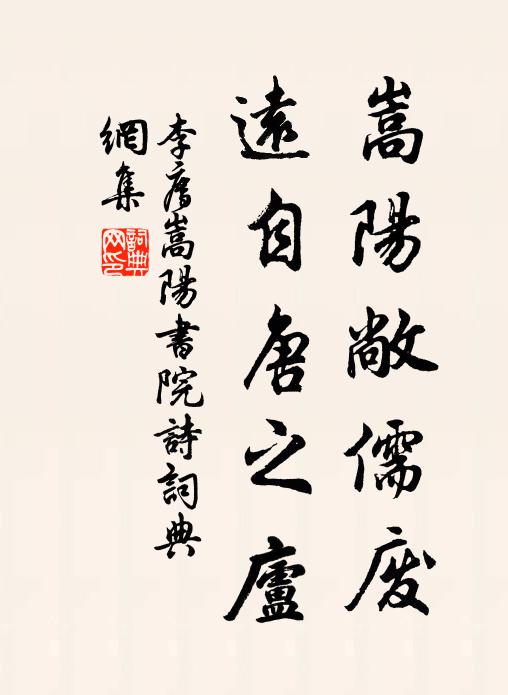 嵩陽敞儒
遠自唐之廬
李廌嵩陽書院詩詞典
網集
詞典
网印